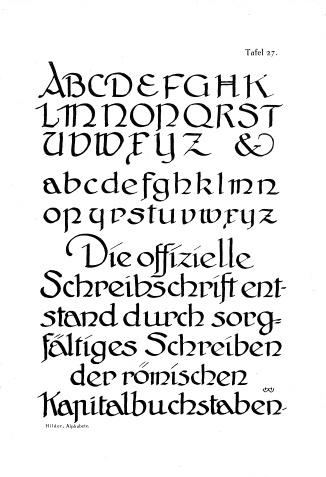 Tafel 27.
ABCDEFGHK
LMNOPQRST
UVWXYZ &
abcdefghklmn
opqrstuvwxyz
Die offizielle
Schreibschrift ent-
stand durch sorg-
fältiges Schreiben
der römischen
Kapitalbuchstaben.
Hilder, Alphabete.